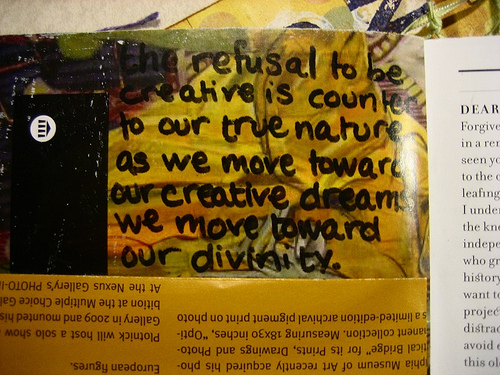 the refusal to be
creative is counter
to our true nature
as we move toward
our creative dreams
we move toward
our divinity.
European figures.
Plotnick will host a solo show
Gallery in 2009 and mounted his
bition at the Multiple Choice Gal
At the Nexus Gallery's PHOTO-
phia Museum of Art recently acquired his pho-
tical Bridge" for its Prints, Drawings and Photo-
manent collection. Measuring 18x30 inches, "Opti-
s a limited-edition archival pigment print on photo
DEAR
Forgive
in a
seen
to the
leafing
I under
the
indepe
who
history
want
projec
distrac
avoid
this